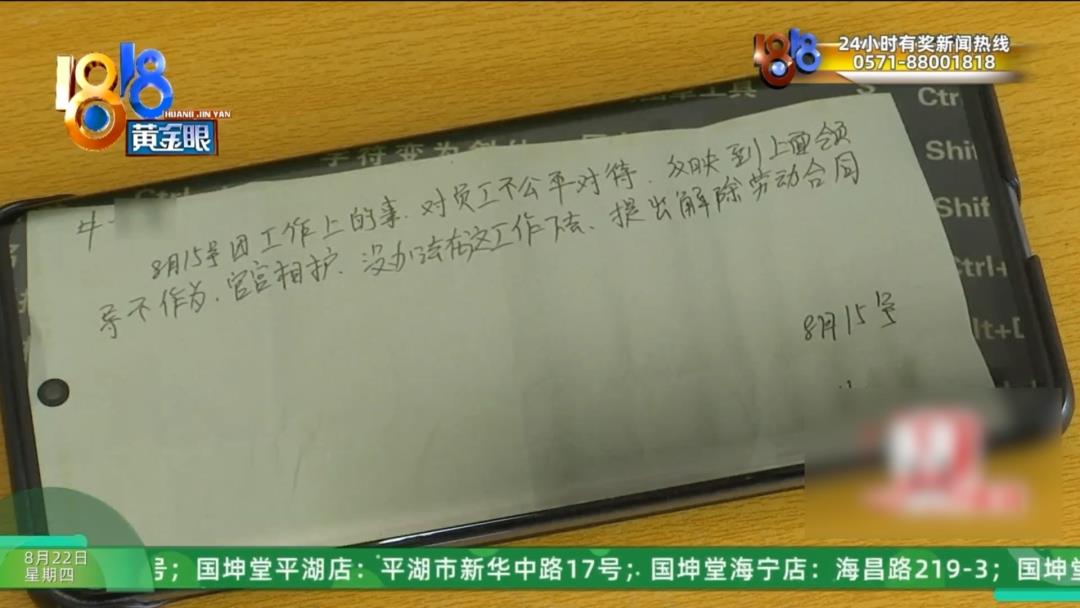 1818
HUANG JIN YAN
黄金眼
24小时有奖新闻热线
0571-88001818
1818
Ctrl
Shif
Shif
Ctrl+
lt+D
牛一
8月15号因工作上的事、对员工不公平对待、反映到上面领
导不作为、官官相护、没办法在这工作下去、提出解除劳动合同
8月15号
8月22日
星期四
号；国坤堂平湖店：平湖市新华中路17号；国坤堂海宁店：海昌路219-3；国坤堂